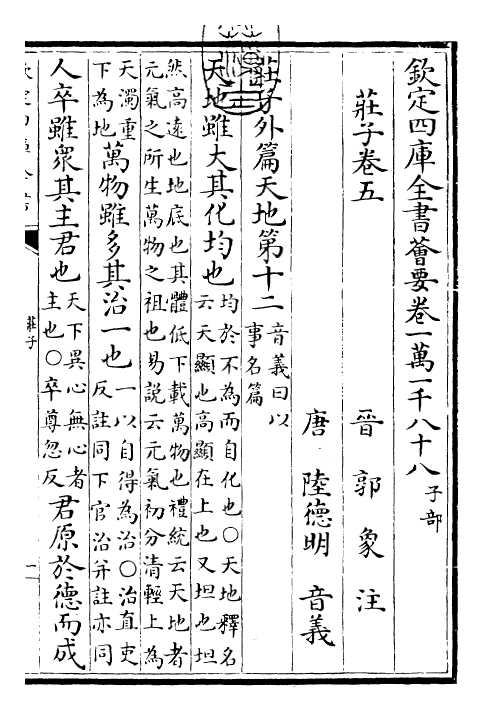 欽定四庫全書薈要卷一萬一千八十八 子部
莊子卷五 晉 郭象 注
唐 陸德明 音義
莊子外篇天地第十二 音義曰以
事名篇
天地雖大其化均也 均於不為而自化也○天地釋名
云天顯也高顯在上也又坦也坦
然高遠也地底也其體低下載萬物也禮統云天地者
元氣之所生萬物之祖也易說云元氣初分清輕上為
天濁重
下為地
萬物雖多其治一也 一以自得為治○治直吏
反註同下官治并註亦同
人卒雖衆其主君也 天下異心無心者
主也○卒尊忽反
君原於德而成
莊子